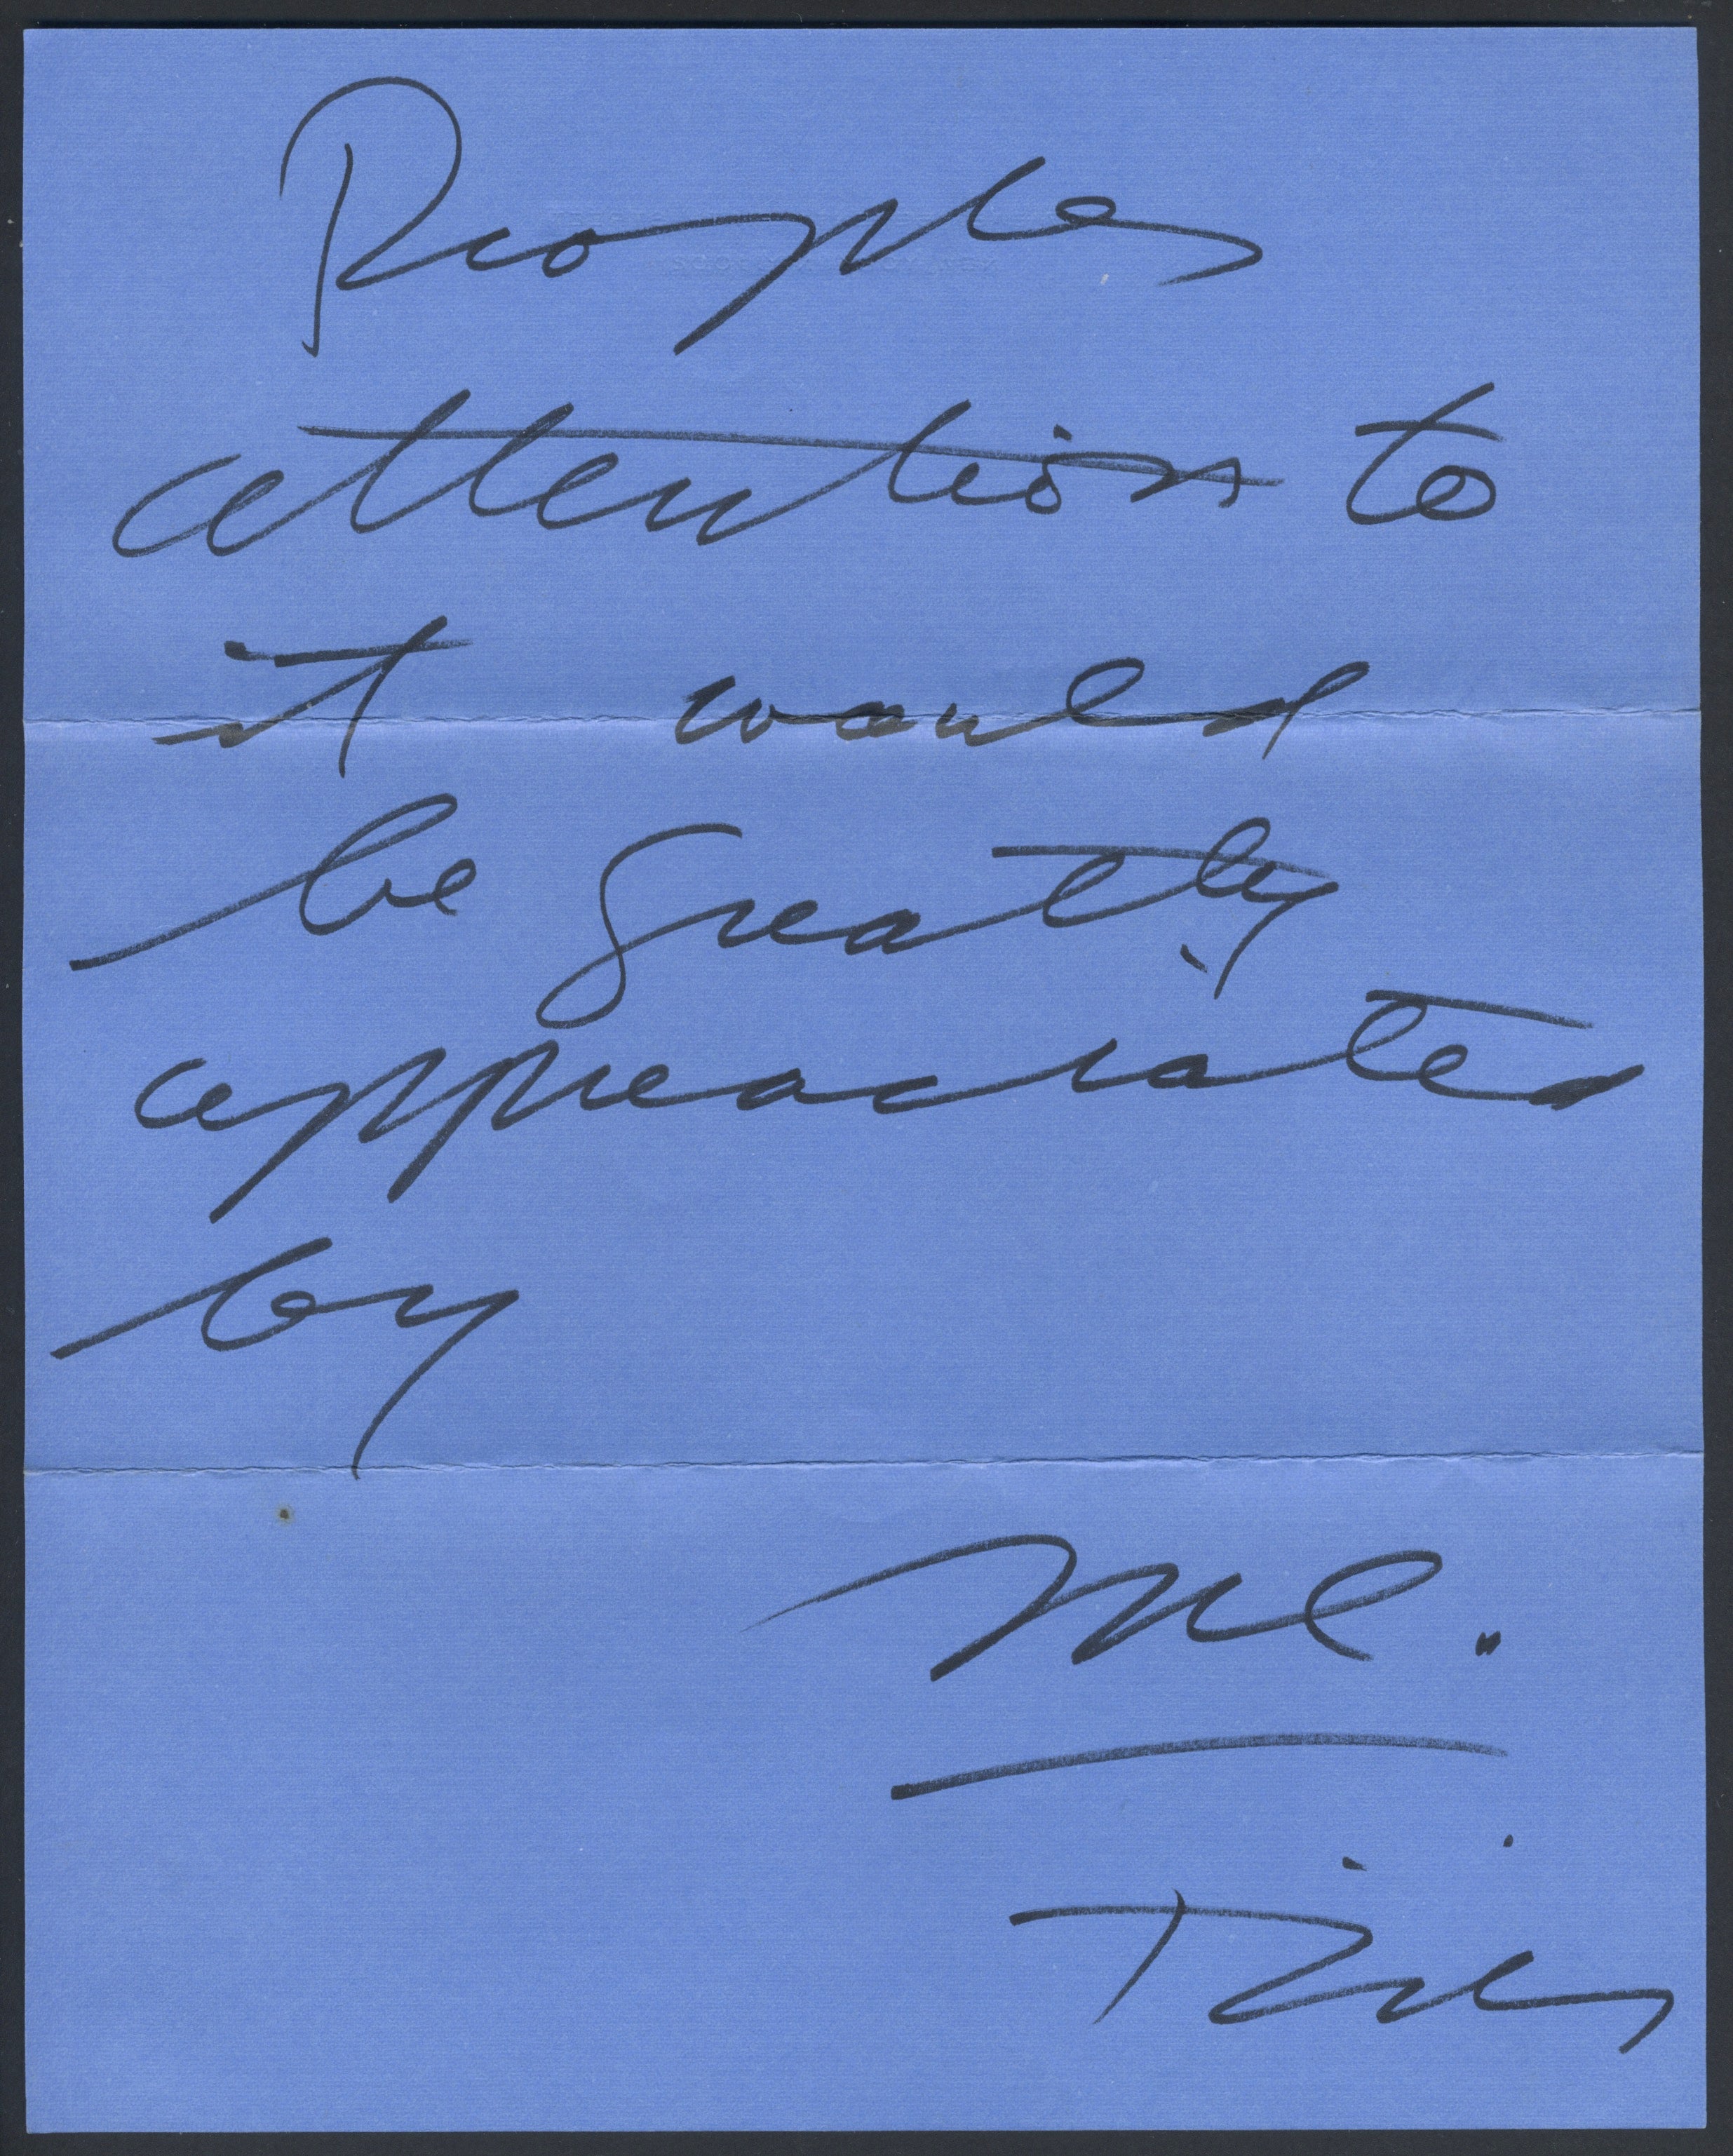 Peoples
attention to
it would
be greatly
appreaciated
by
me.